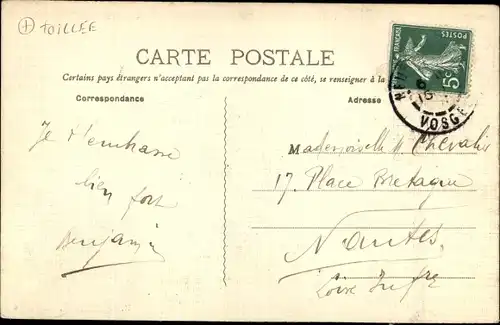 TOILLEE
CARTE POSTALE
Certains pays étrangers n'acceptant pas la correspondance de ce côté, se renseigner à la
Correspondance
Adresse
POSTES
5c
VOSGE
Je t'embrasse
bien fort
Benjamin
Mademoiselle Chevalier
17, Place Bretagne
Nantes
Loire Infre